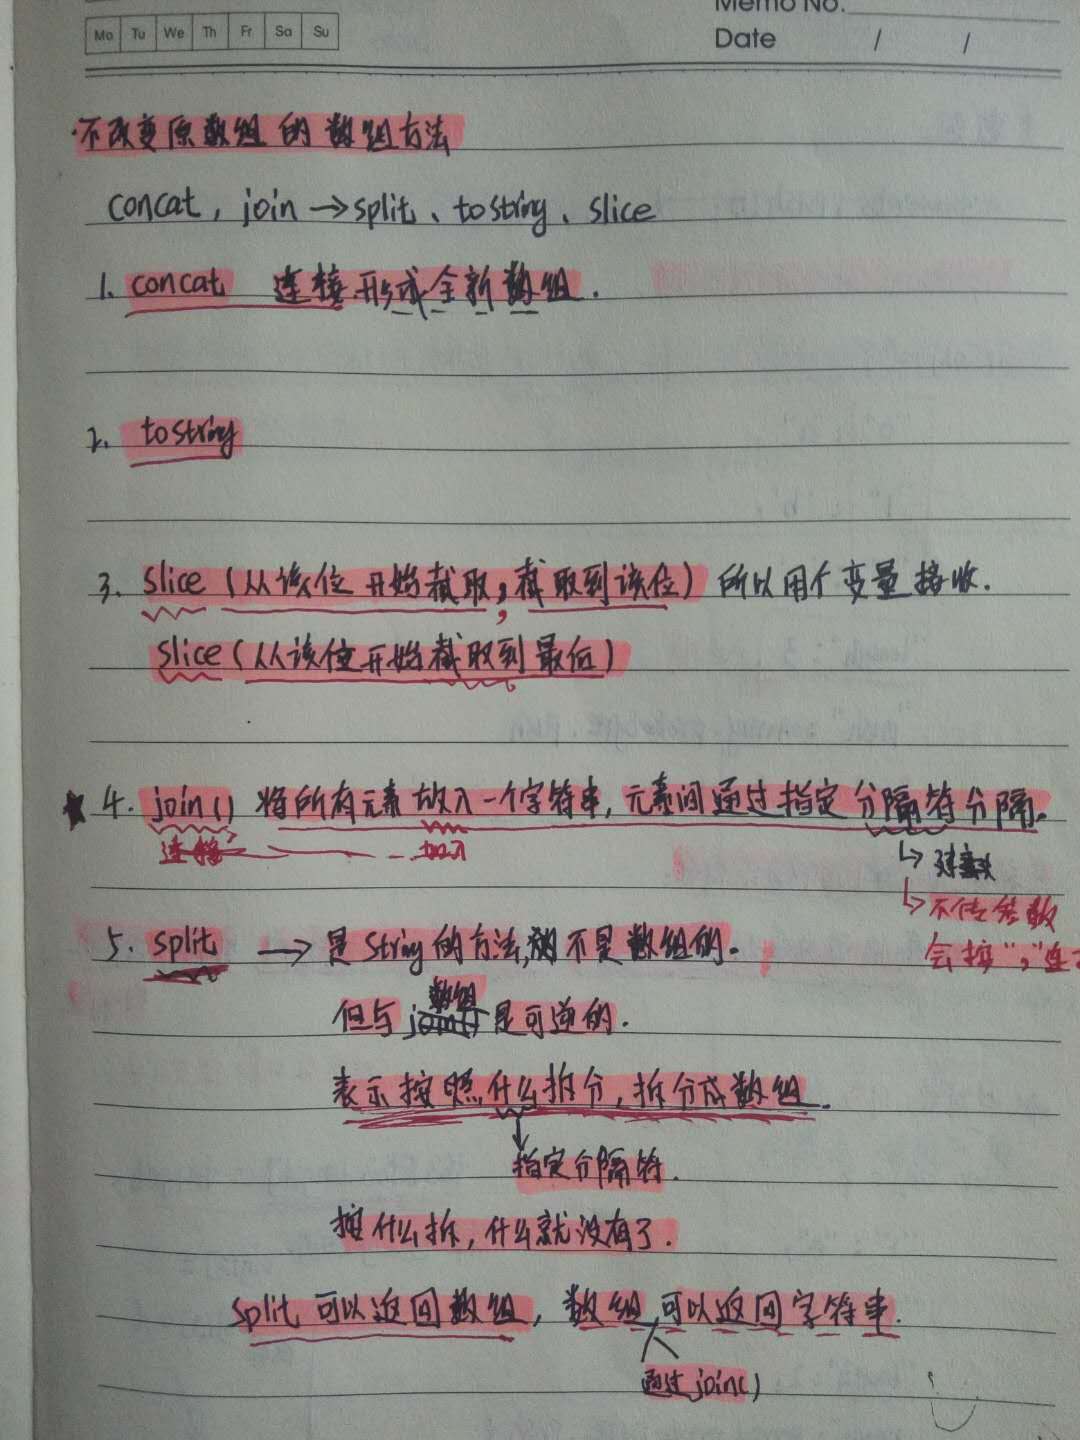 Memo No.
Mo Tu We Th Fr Sa Su
Date / /
·不改变原数组的数组方法
concat, join→split、tostring、slice
1. concat 连接形成全新数组.
2. tostring
3. slice (从该位开始截取,截取到该位) 所以用个变量接收.
slice (从该位开始截取到最后)
★4. join() 将所有元素放入一个字符串,元素间通过指定分隔符分隔.
连接 加入
↳不传参数
会按","连
5. split → 是String的方法,不是数组的.
数组
但与 join() 是可逆的.
表示按照什么拆分,拆分成数组.
指定分隔符.
按什么拆,什么就没有了.
split 可以返回数组, 数组可以返回字符串.
通过join()